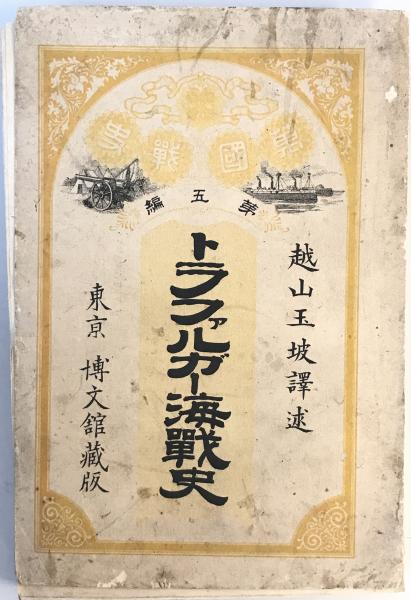 萬國戰史
第五編
越山玉坡譯述
トラファルガー海戰史
東亰 博文館藏版